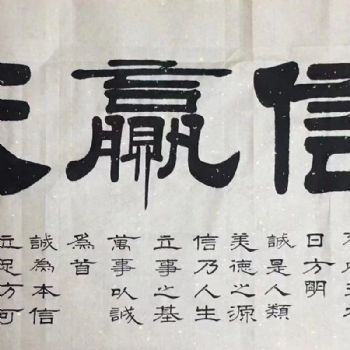 信贏
日方明
誠是人類
美德之源
信乃人生
立事之基
萬事以誠
爲首
誠為本信
立足方可